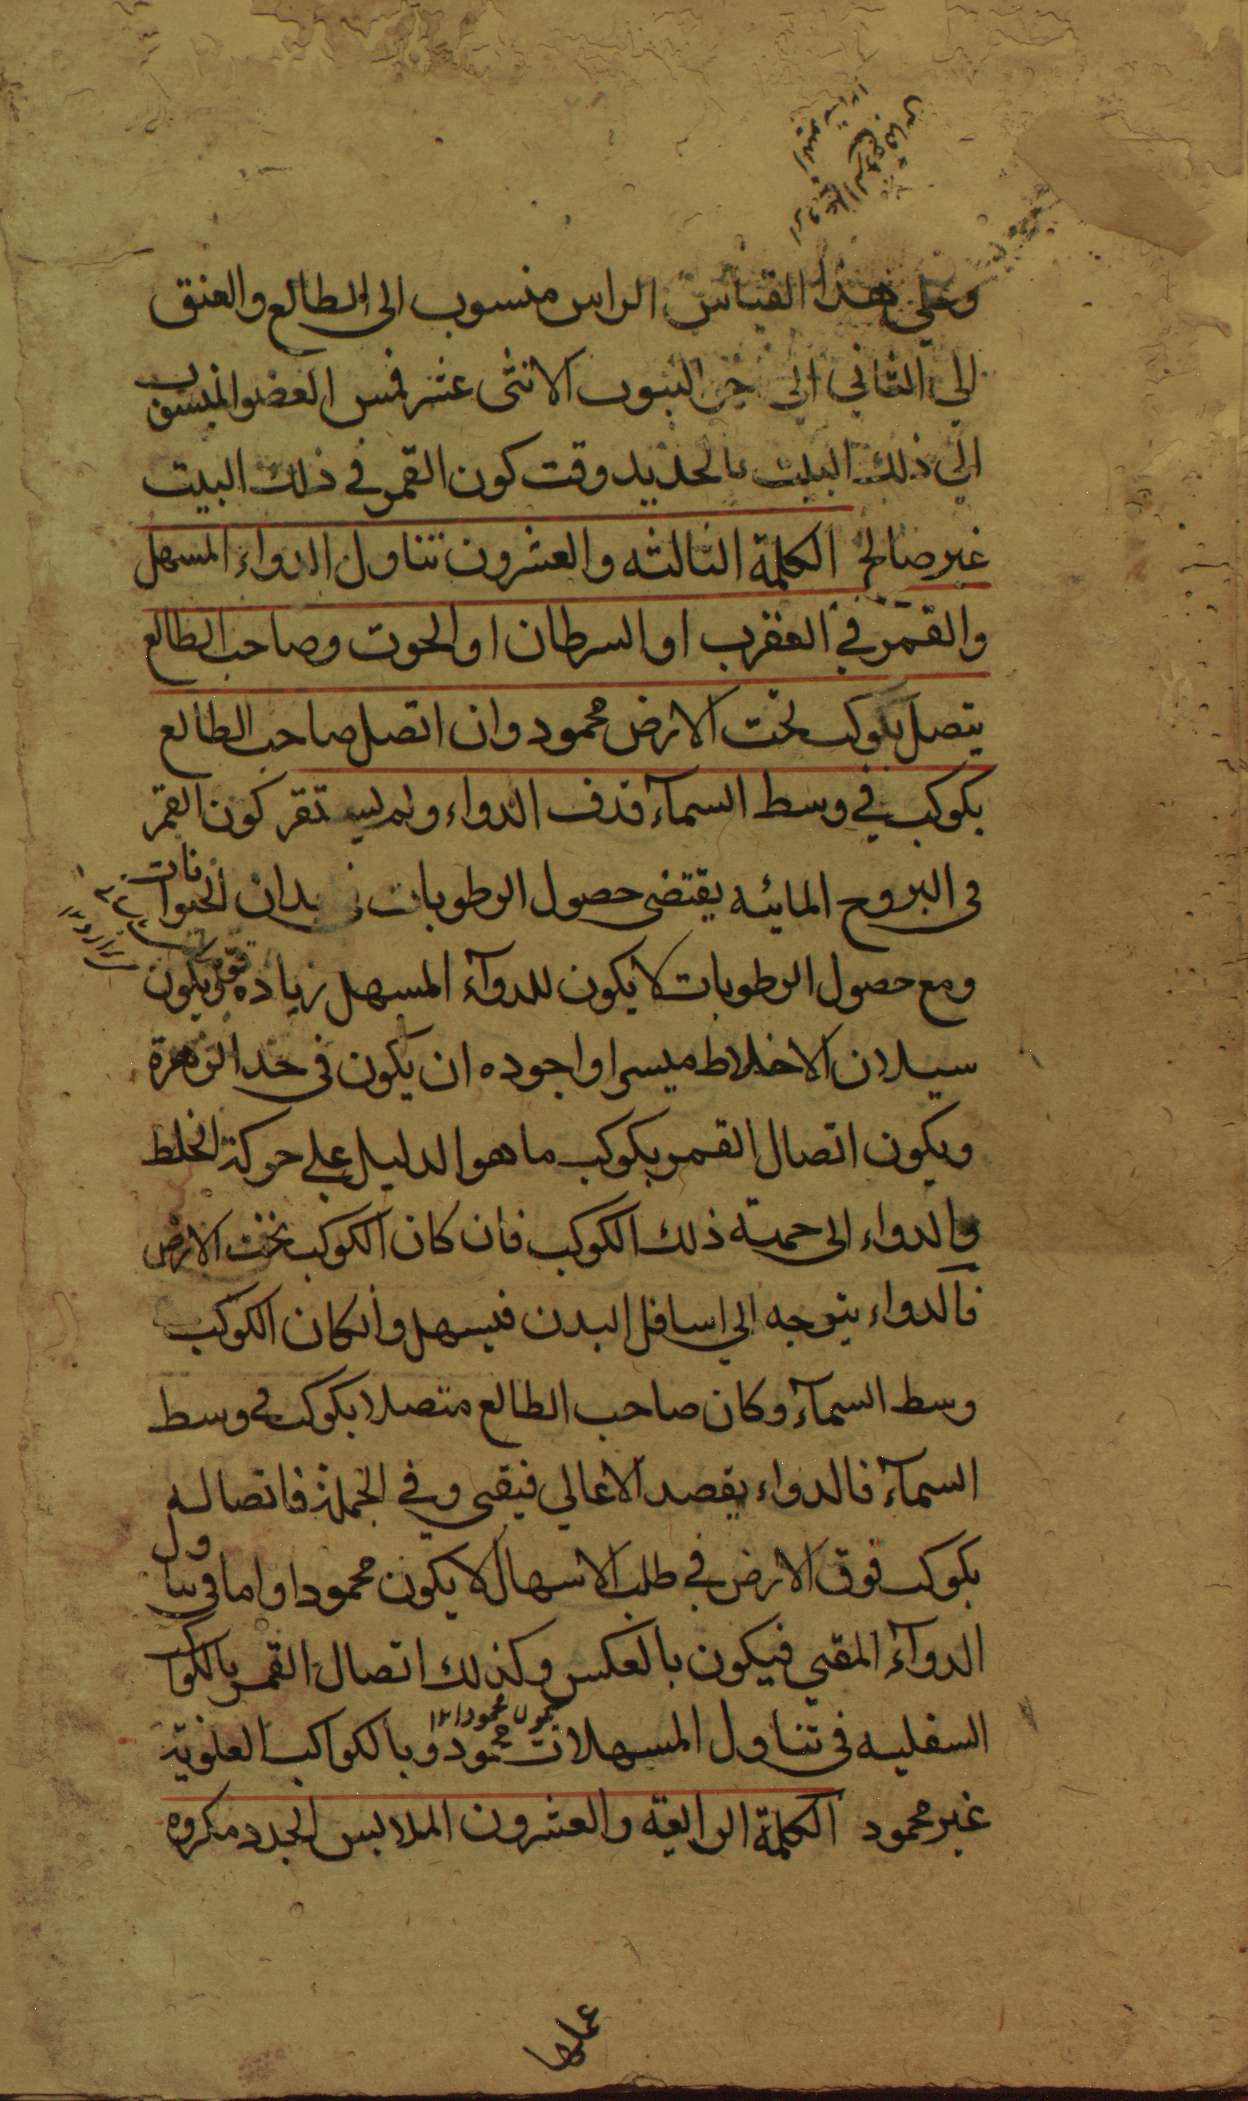 وعلي هذا القياس الراس منسوب الى الطالع والعنق
الى الثاني الى اخر البيوت الاثنى عشر فمس العضو المنسوب
الى ذلك البيت بالحديد وقت كون القمر في ذلك البيت
غير صالح الكلمة الثالثه والعشرون تناول الدواء المسهل
والقمر في العقرب او السرطان او الحوت وصاحب الطالع
يتصل بكوكب تحت الارض محمود وان اتصل صاحب الطالع
بكوكب في وسط السمآء قذف الدواء ولم يستقر كون القمر
في البروج المائيه يقتضي حصول الرطوبات في بدان الحيوانات
ومع حصول الرطوبات لا يكون للدوآء المسهل زياده قوة ويكون
سيلان الاخلاط ميسرا واجوده ان يكون في حد الزهرة
ويكون اتصال القمر بكوكب ما هو الدليل علي حركة الخلط
والدواء الى جهة ذلك الكوكب فان كان الكوكب تحت الارض
فالدواء يتوجه الي اسافل البدن فيسهل وانكان الكوكب
وسط السمآء وكان صاحب الطالع متصلا بكوكب في وسط
السمآء فالدواء يقصد الاعالي فيقي وفي الجملة فاتصاله
بكوكب فوق الارض في طلب الاسهال لا يكون محمودا واما في تناول
الدوآء المقي فيكون بالعكس وكذلك اتصال القمر بالكواكب
السفليه في تناول المسهلات محمود وبالكواكب العلوية
يكون محمودا
غير محمود الكلمة الرابعة والعشرون الملابس الجدد مكروه
عملها